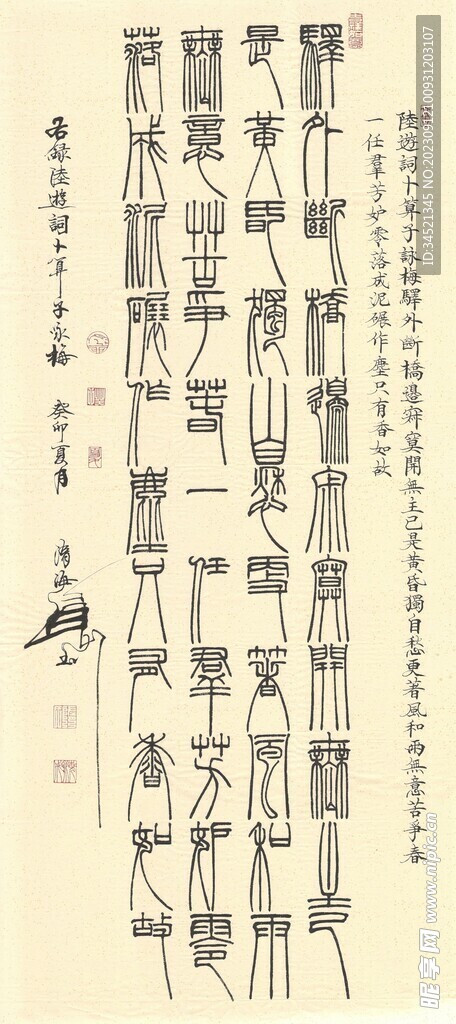 陸遊詞卜算子詠梅驛外斷橋邊寂寞開無主已是黃昏獨自愁更著風和雨無意苦爭春
一任羣芳妒零落成泥碾作塵只有香如故
驛外斷橋邊寂寞開無主已
是黃昏獨自愁更著風和雨
無意苦爭春一任羣芳妒零
落成泥碾作塵只有香如故
右録陸遊詞卜算子詠梅 癸卯夏月
ID:34521345
昵享网 www.nipic.cn